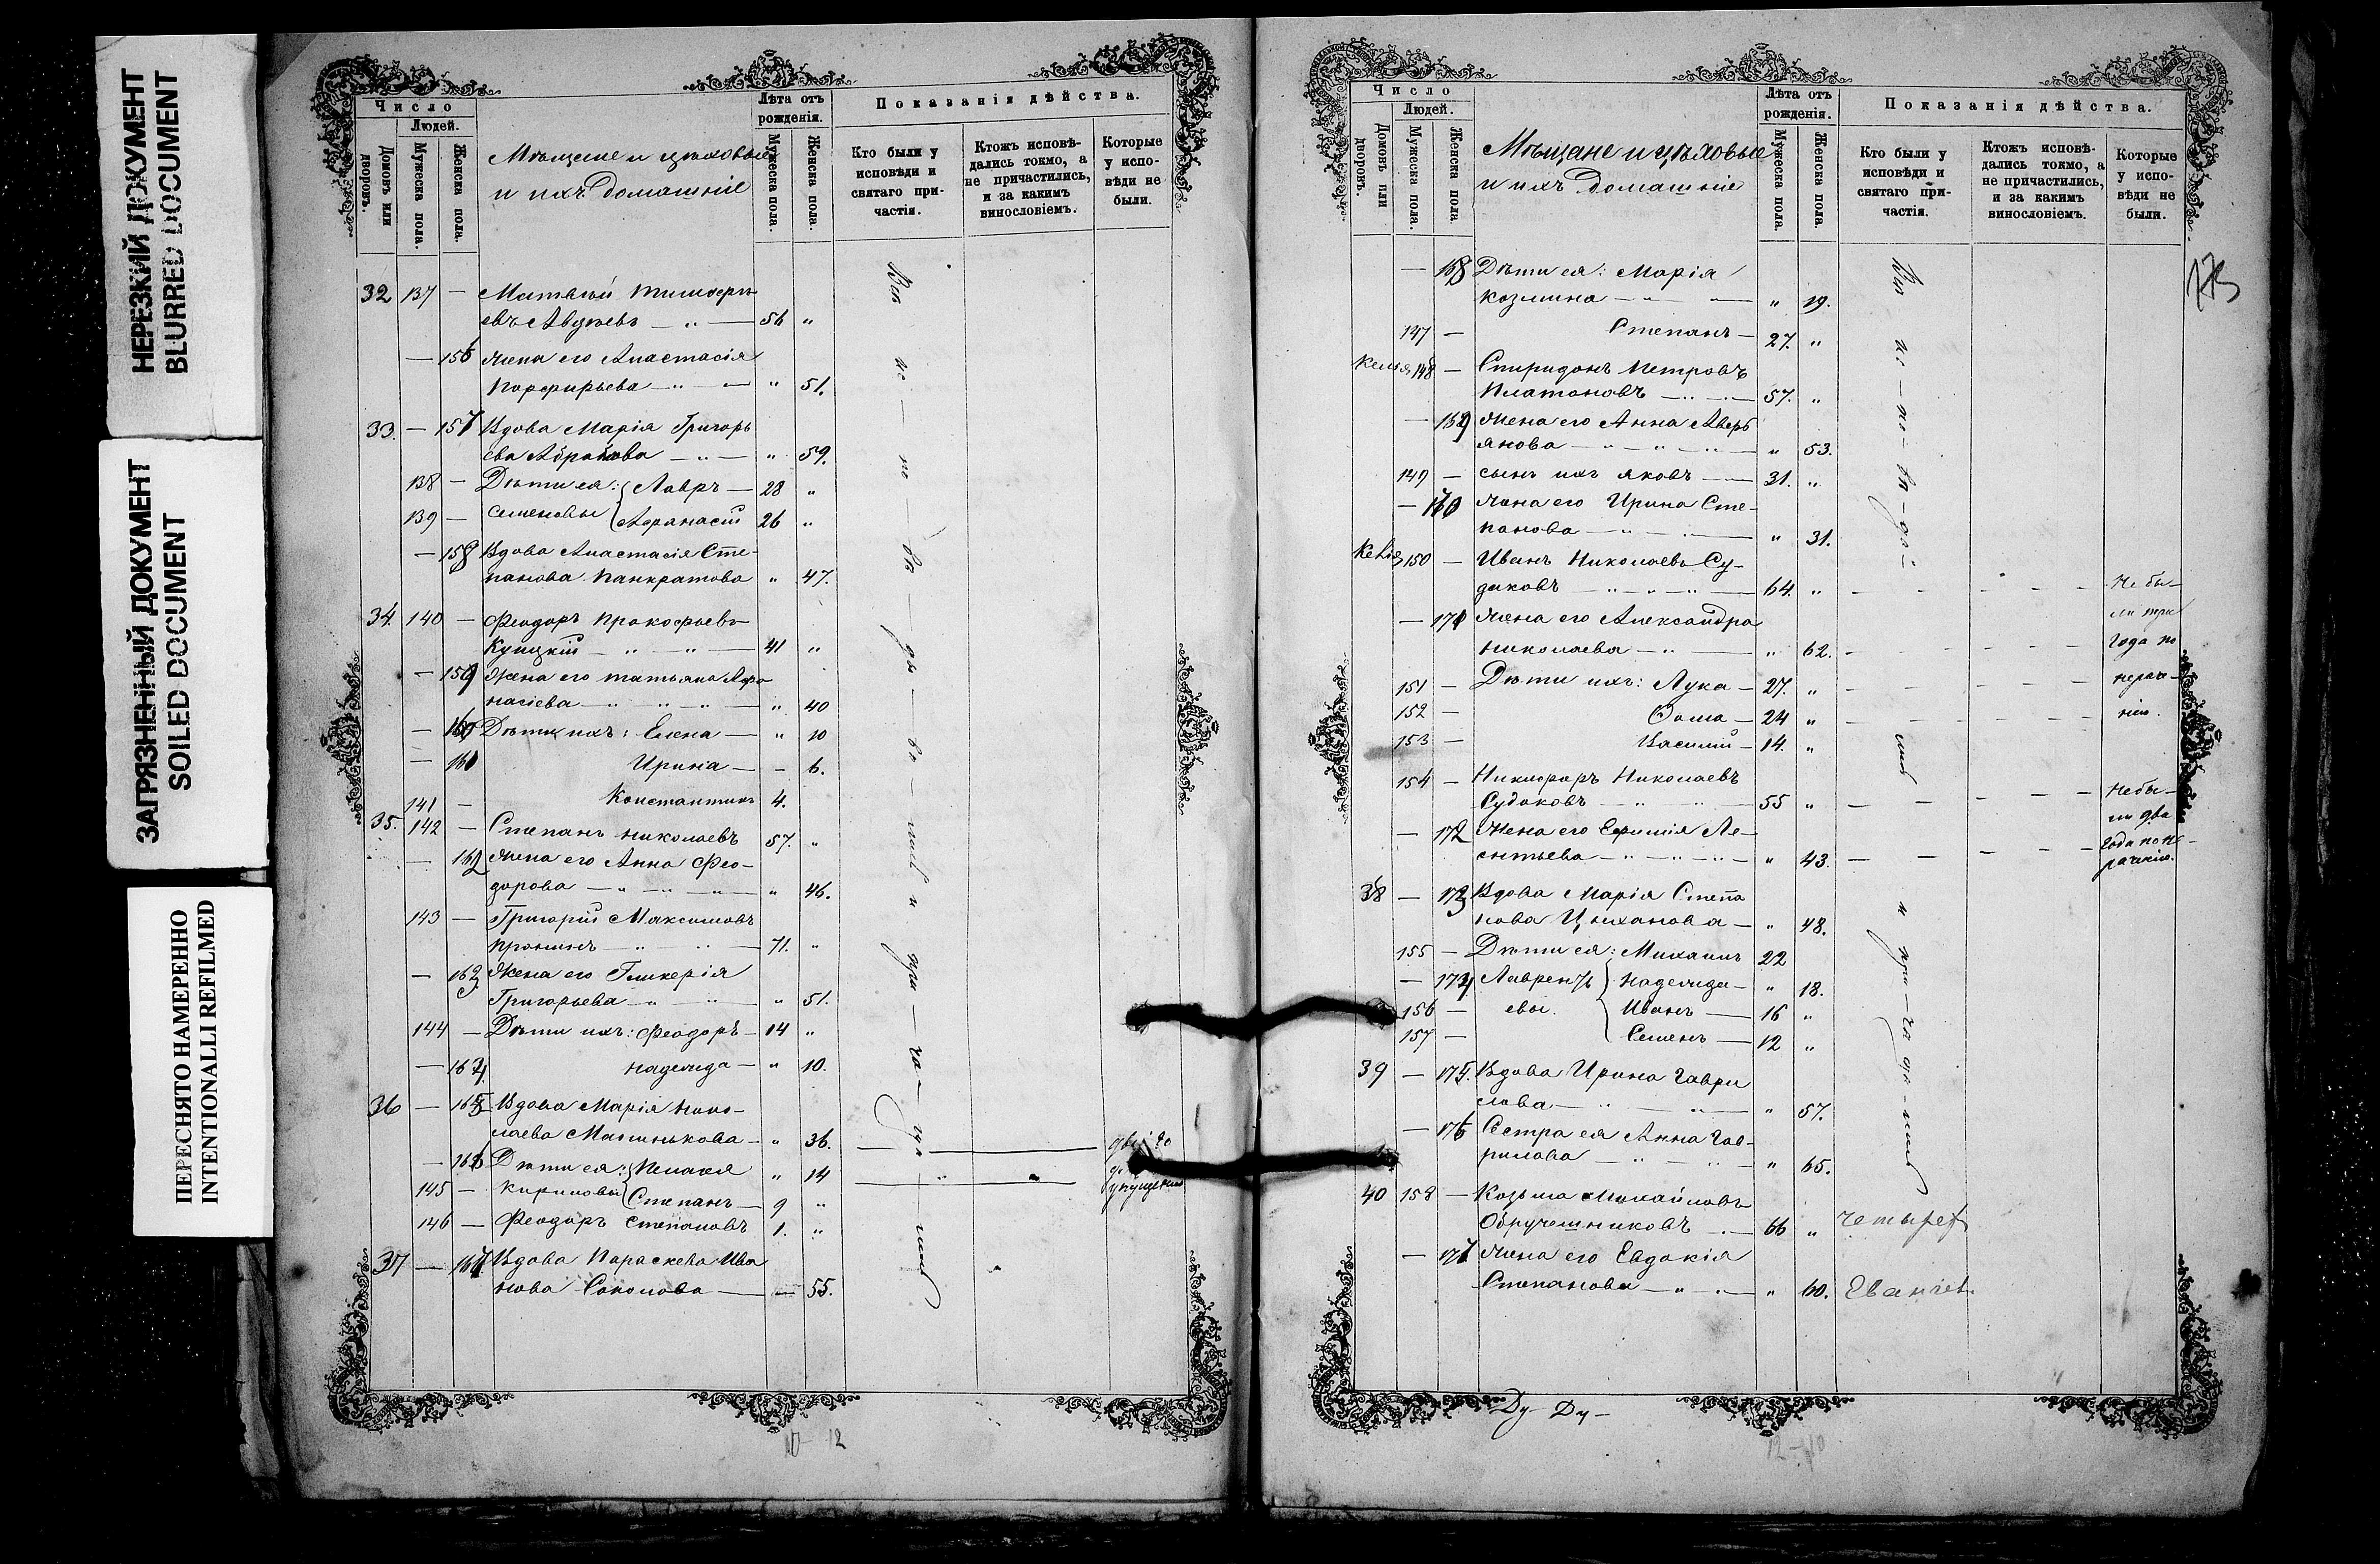 НЕРЕЗКИЙ ДОКУМЕНТ
BLURRED DOCUMENT
ЗАГРЯЗНЕННЫЙ ДОКУМЕНТ
SOILED DOCUMENT
ПЕРЕСНЯТО НАМЕРЕННО
INTENTIONALLI REFILMED
Число
Людей.
Домовъ или дворовъ.
Мужеска пола.
Женска пола.
Мѣщане и цѣховые
и ихъ домашніе
Лѣта отъ рожденія.
Мужеска пола.
Женска пола.
Показанія дѣйства.
Кто были у исповѣди и святаго причастія.
Ктожъ исповѣдались токмо, а не причастились, и за какимъ винословіемъ.
Которые у исповѣди не были.
32 137 — Матвѣй
евъ Авдѣевъ — „ — 56 „
— 156 Жена его Анастасія
Порфирьева — „ — „ 51.
33. — 157 Вдова Марія Григорь
ева — „ — „ 59.
138 — Дѣти ея: Лавръ — 28 „
139 — Семеновы Афанасій 26 „
— 158 Вдова Анастасія Сте-
панова Панкратова „ 47.
34. 140 — Феодоръ Прокофьевъ
Купцкій — „ — „ — 41 „
— 159 Жена его Татьяна Афа
насіева — „ „ „ — „ 40
— 160 Дѣти ихъ: Елена — „ 10
— 161 Ирина — - 6.
141 — Константинъ 4.
35. 142 — Степанъ Николаевъ 57. „
— 162 Жена его Анна Фео-
дорова — „ — „ — „ — „ 46.
143 — Григорій Максимовъ
Пронинъ — „ „ — 71. „
— 163 Жена его Гликерія
Григорьева — „ „ — „ 51.
144 — Дѣти ихъ: Феодоръ — 14 „
— 164. Надежда — „ 10.
36 — 165 Вдова Марія Нико-
лаева Малинькова — „ 36.
— 166 Дѣти ея: Пелагея „ 14
145 — Кириловы Степанъ — 9 „
146 — Феодоръ Степановъ 1. „
37 — 167 Вдова Параскева Ива
нова Соколова — — 55.
Всѣ ис — по — вѣ — ды — ва — лись и при — ча — ща — лись
упущенію
10 - 12
Число
Людей.
Домовъ или дворовъ.
Мужеска пола.
Женска пола.
Мѣщане и цѣховые
и ихъ домашніе
Лѣта отъ рожденія.
Мужеска пола.
Женска пола.
Показанія дѣйства.
Кто были у исповѣди и святаго причастія.
Ктожъ исповѣдались токмо, а не причастились, и за какимъ винословіемъ.
Которые у исповѣди не были.
173
— 168 Дѣти ея: Марія
Козмина — „ — „ 19.
147 — Степанъ — 27. „
Келія 148 — Спиридонъ Петровъ
Платоновъ — „ — 57. „
— 169 Жена его Анна Аверь
янова — „ „ „ — „ 53.
149 — сынъ ихъ Яковъ — 31. „
— 170 Жена его Ирина Сте-
панова — „ — „ 31.
Келія 150 — Иванъ Николаевъ Су-
даковъ — „ „ „ — 64. „ Не бы-
— 171 Жена его Александра ли три
Николаева — „ — „ 62. года по
151 — Дѣти ихъ: Лука — 27. „ нераче-
152 — Ѳома — 24 „ нію.
153 — Василій — 14. „
154 — Никифоръ Николаевъ Не бы-
Судаковъ — „ „ — 55 „ ли два
— 172 Жена его Ефимія Ле- года по не-
онтьева — „ „ „ — „ 43. раченію.
38 — 173 Вдова Марія Степа
нова Цыханова — „ 48.
155 — Дѣти ея: Михаилъ 22
— 174 Лаврентьевы Надежда — „ 18.
156 — Иванъ — 16 „
157 — Семенъ — 12 „
39 — 175. Вдова Ирина Гаври
лова — „ „ — „ 57.
— 176 Сестра ея Анна Гав-
рилова — „ — „ — „ 65.
40 158 — Козьма Михайловъ
Обручешниковъ — 66 „ Четырех
— 177 Жена его Евдокія
Степанова — „ — „ 60. Евангел.
Ду- Ду-
12 - 10